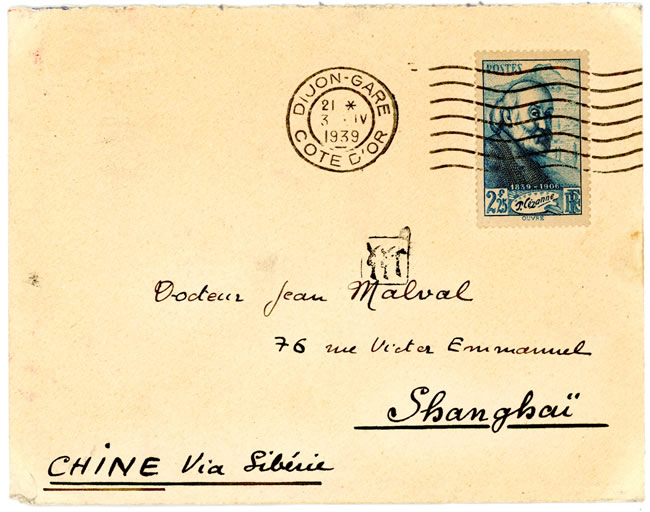 DIJON-GARE
21 *
3 - IV
1939
COTE D'OR
POSTES
1839-1906
2F25 P. Cézanne RF
OUVRÉ
Docteur Jean Malval
76 rue Victor Emmanuel
Shanghaï
CHINE Via Sibérie